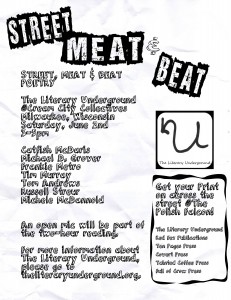 STREET
MEAT &
BEAT
Street, Meat & Beat
Poetry
The Literary Underground
@Cream City Collectives
Milwaukee, Wisconsin
Saturday, June 2nd
3-5pm
Catfish McDaris
Michael D. Grover
Frankie Metro
Tim Murray
Tom Andrews
Russell Streur
Michele McDannold
An open mic will be part of
the two-hour reading.
For more information about
The Literary Underground,
please go to
theliteraryunderground.org.
U
The Literary Underground
Get your Print
on across the
street @The
Polish Falcon!
The Literary Underground
Red Fez Publications
Ten Pages Press
Covert Press
Tainted Coffee Press
Full of Crow Press